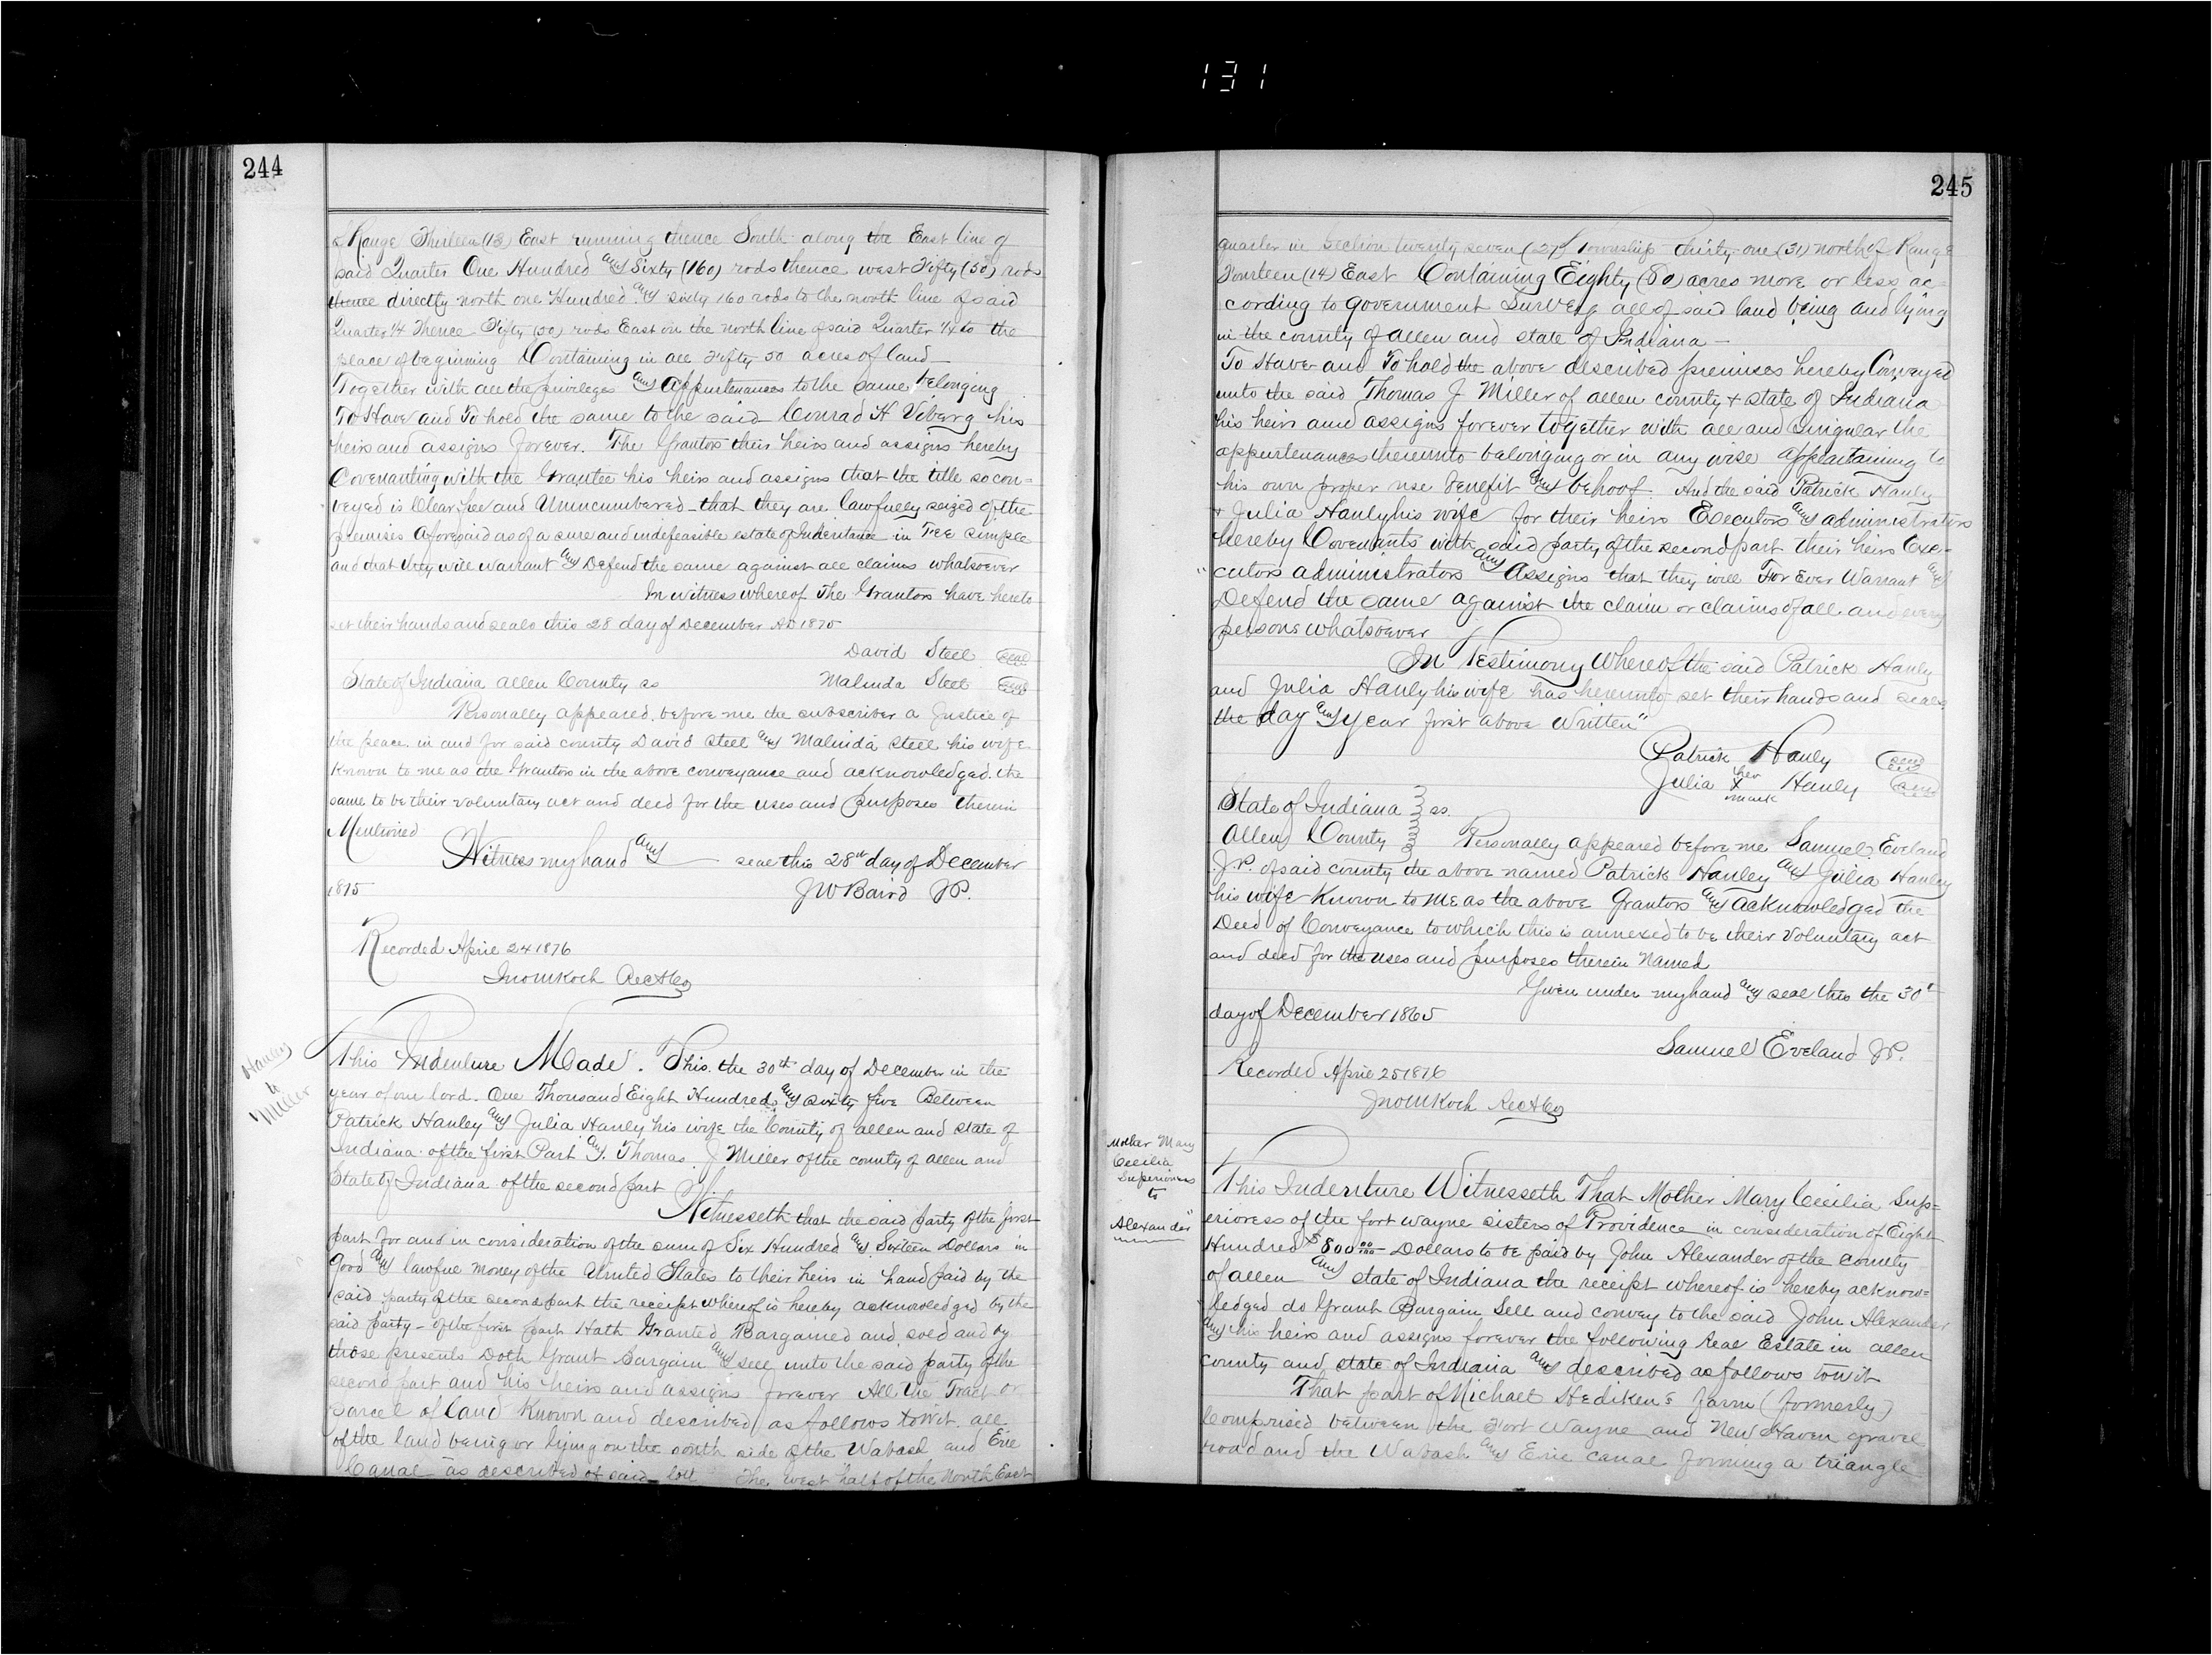 131
244
of Range Thirteen (13) East running thence South along the East line of
said Quarter One Hundred and Sixty (160) rods thence west Fifty (50) rods
thence directly north one Hundred and sixty 160 rods to the north line of said
Quarter 1/4 Thence Fifty (50) rods East on the north line of said Quarter 1/4 to the
place of beginning Containing in all Fifty 50 acres of land
Together with all the privileges and appurtenances to the same belonging
To Have and To hold the same to the said Conrad H Viberg his
heirs and assigns forever. The Grantors their heirs and assigns hereby
Covenanting with the Grantee his heirs and assigns that the title so con=
veyed is Clear free and Unincumbered - that they are lawfully seized of the
premises aforesaid as of a sure and indefeasible estate of Inheritance in Fee Simple
and that they will warrant and Defend the same against all claims whatsoever
In witness whereof The Grantors have hereto
set their hands and seals this 28 day of December AD 1875
David Steel seal
State of Indiana Allen County ss Malinda Steel seal
Personally appeared before me the subscriber a Justice of
the peace in and for said county David Steel and Malinda Steel his wife
Known to me as the Grantors in the above conveyance and acknowledged the
same to be their voluntary act and deed for the uses and purposes therein
Mentioned
Witness my hand and seal this 28th day of December
1875 JW Baird JP.
Recorded April 24 1876
Jno M Koch RecACo
Hanley
to
Miller
This Indenture Made. This the 30th day of December in the
year of our lord One Thousand Eight Hundred and sixty five Between
Patrick Hanley and Julia Hanly his wife the County of Allen and State of
Indiana of the first Part and Thomas J Miller of the county of Allen and
State of Indiana of the second part
Witnesseth that the said party of the first
part for and in consideration of the sum of Six Hundred and Sixteen Dollars in
Good and lawful money of the United States to their heirs in hand paid by the
said party of the second part the receipt whereof is hereby acknowledged by the
said party - of the first part Hath Granted Bargained and sold and by
those presents Doth Grant Bargain and sell unto the said party of the
second part and his heirs and assigns forever All the Tract or
parcel of land Known and described as follows towit all
of the land being or lying on the south side of the Wabash and Erie
Canal as described of said lott The west half of the North East
245
quarter in Section twenty seven (27) Township thirty-one (31) north of Range
Fourteen (14) East Containing Eighty (80) acres more or less ac=
cording to government Survey all of said land being and lying
in the county of Allen and state of Indiana -
To Have and To hold the above described premises hereby Conveyed
unto the said Thomas J Miller of Allen county + state of Indiana
his heirs and assigns forever together with all and singular the
appurtenances thereunto belonging or in any wise appertaining to
his own proper use benefit and behoof And the said Patrick Hanly
+ Julia Hanly his wife for their heirs Executors and administrators
hereby Covenants with said party of the second part their heirs Exe-
cutors administrators and Assigns that they will For Ever Warrant and
Defend the same against the claim or claims of all and every
persons whatsoever
In Testimony Whereof the said Patrick Hanly
and Julia Hanly his wife has hereunto set their hands and seals
the day and year first above Written"
Patrick Hanly seal
Julia her x mark Hanly seal
State of Indiana } ss.
Allen County } Personally appeared before me Samuel Eveland
J.P. of said county the above named Patrick Hanley and Julia Hanley
his wife Known to me as the above Grantors and acknowledged the
Deed of Conveyance to which this is annexed to be their Voluntary act
and deed for the uses and purposes therein Named
Given under my hand and seal this the 30th
day of December 1865
Samuel Eveland JP.
Recorded April 25 1876
Jno M Koch RecACo
Mother Mary
Cecilia
Superioress
to
Alexander
This Indenture Witnesseth That Mother Mary Cecilia Sup=
erioress of the fort wayne sisters of Providence in consideration of Eight
Hundred $800 00/100 Dollars to be paid by John Alexander of the county
of allen and state of Indiana the receipt whereof is hereby acknow=
ledged do Grant Bargain Sell and convey to the said John Alexander
and his heirs and assigns forever the following Real Estate in allen
county and state of Indiana and described as follows towit
That part of Michael Hediken's farm (formerly)
Comprised between the Fort Wayne and New Haven gravel
road and the Wabash and Erie canal forming a triangle